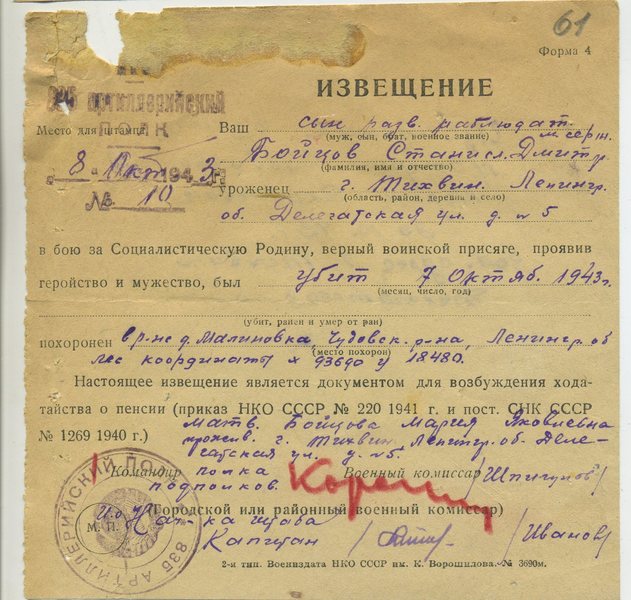 61
Форма 4
ИЗВЕЩЕНИЕ
артиллерийский
ПОЛК
Место для штампа
8 Окт 1943 г.
№ 10
Ваш сын разв. наблюдат. м. серж.
(муж, сын, брат, военное звание)
Бойцов Станисл. Дмитр.
(фамилия, имя и отчество)
уроженец г. Тихвин. Ленингр.
(область, район, деревня и село)
об. Делегатская ул. д. №5
в бою за Социалистическую Родину, верный воинской присяге, проявив
геройство и мужество, был убит 7 Октяб. 1943 г.
(месяц, число, год)
(убит, ранен и умер от ран)
похоронен в р-не д. Малиновка, Чудовск. р-на, Ленингр. об
(место похорон)
лес координаты х 93690 у 18480.
Настоящее извещение является документом для возбуждения хода-
тайства о пенсии (приказ НКО СССР № 220 1941 г. и пост. СНК СССР
№ 1269 1940 г.) мать Бойцова Мария Яковлевна
прожив. г. Тихвин, Ленингр. об. Деле-
гатская ул. д. №5.
Командир полка Военный комиссар /Шпигунов/
подполков.
(Городской или районный военный комиссар)
И.о. Нач-ка штаба
М. П.
Капитан /Иванов/
835 АРТИЛЛЕРИЙСКИЙ ПОЛК
2-я тип. Воениздата НКО СССР им. К. Ворошилова. № 3690м.